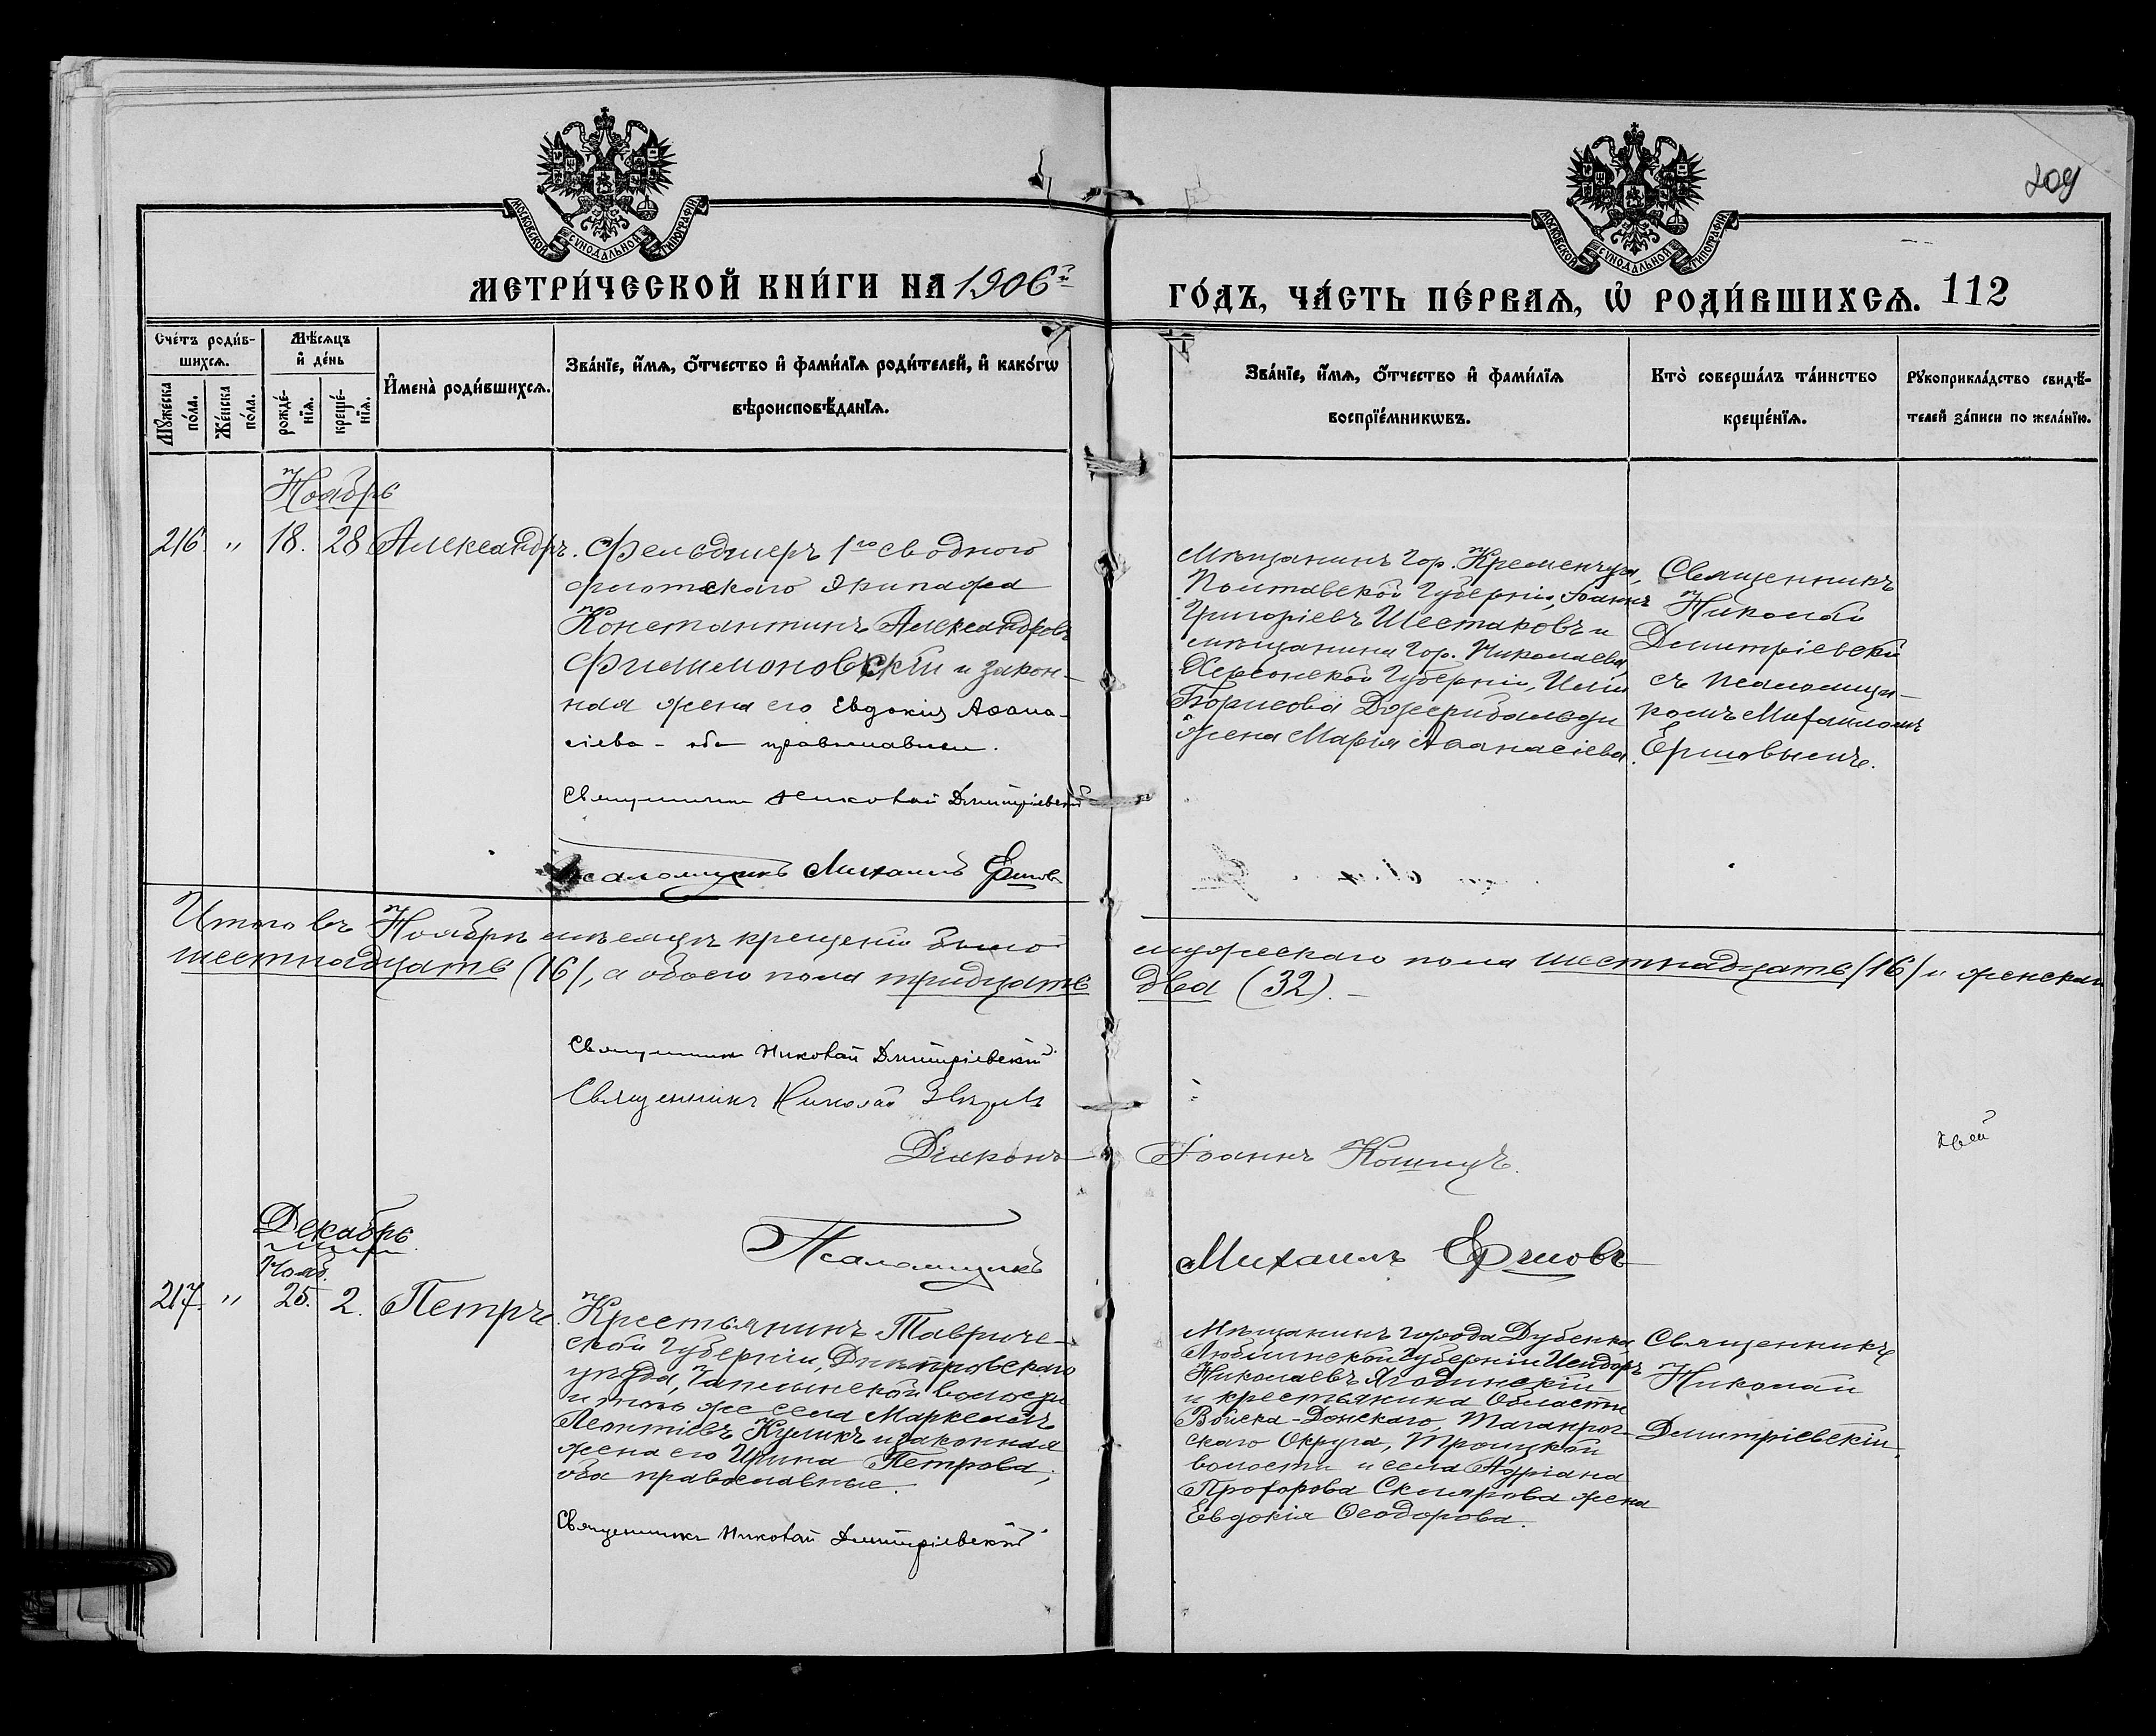 209
МОСКОВСКОЙ СѴНОДАЛЬНОЙ ТИПОГРАФІИ
МОСКОВСКОЙ СѴНОДАЛЬНОЙ ТИПОГРАФІИ
МЕТРИ́ЧЕСКОЙ КНИ́ГИ НА 1906й
ГО́ДЪ, ЧА́СТЬ ПЕ́РВАѦ, Ѡ҆ РОДИ́ВШИХСѦ. 112
Сче́тъ роди́в-
шихсѧ.
Мꙋ́жеска по́ла.
Же́нска по́ла.
Мѣ́сѧцъ
и҆ де́нь
рожде́-
нїѧ.
креще́-
нїѧ.
И҆мена̀ роди́вшихсѧ.
Зва́нїе, и҆́мѧ, ѻ҆́тчество и҆ фами́лїѧ роди́телей, и҆ како́гѡ
вѣроисповѣ́данїѧ.
Зва́нїе, и҆́мѧ, ѻ҆́тчество и҆ фами́лїѧ
воспрїе́мникѡвъ.
Кто̀ соверша́лъ та́инство
креще́нїѧ.
Рꙋкоприкла́дство свидѣ́-
телей за́писи по жела́нїю.
Ноябрь
216. " 18. 28 Александръ.
Фельдшеръ 1го своднаго
флотскаго экипажа
Константинъ Александровъ
Филимоновскій и закон-
ная жена его Евдокія Аѳана-
сіева - оба православные.
Священникъ Николай Дмитріевскій
Псаломщикъ Михаилъ Ершовъ
Мѣщанинъ гор. Кременчуга,
Полтавской Губерніи, Іоаннъ
Григоріевъ Шестаковъ и
мѣщанина гор. Николаева
Херсонской Губерніи, Иліи
Борисова Джерибальди
жена Марія Аѳанасіева.
Священникъ
Николай
Дмитріевскій
съ псаломщи-
комъ Михаиломъ
Ершовымъ.
Итого въ Ноябрѣ мѣсяцѣ крещено было мужескаго пола шестнадцать (16) и женскаго
шестнадцать (16), а обоего пола тридцать два (32).-
Священникъ Николай Дмитріевскій
Священникъ Николай
Діаконъ Іоаннъ Кошицъ.
Псаломщикъ Михаилъ Ершовъ
Декабрь
Нояб.
217. " 25. 2. Петръ.
Крестьянинъ Тавриче-
ской Губерніи, Днѣпровскаго
уѣзда, Чаплынской волости
и того же села Маркеллъ
Леонтіевъ Куликъ и законная
жена его Ирина Петрова,
оба православные.
Священникъ Николай Дмитріевскій
Мѣщанинъ города Дубенка
Люблинской Губерніи Исидоръ
Николаевъ Ягодинскій
и крестьянина Области
Войска-Донскаго, Таганрог-
скаго Округа, Троицкой
волости и села Адріана
Прохорова Склярова жена
Евдокія Ѳеодорова.
Священникъ
Николай
Дмитріевскій.